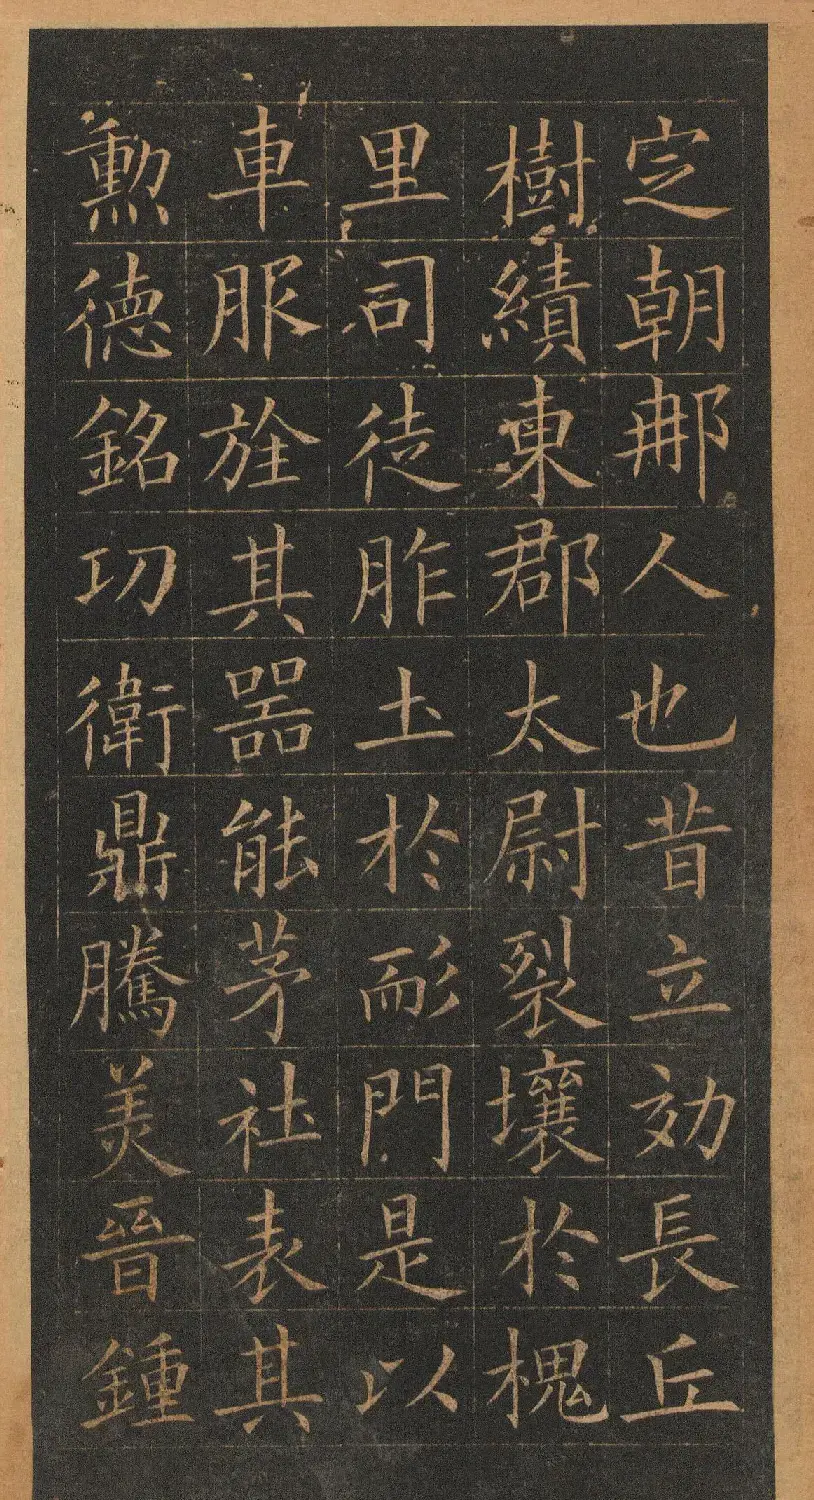 定朝那人也昔立効長丘
樹績東郡太尉裂壤於槐
里司徒胙土於耏門是以
車服旌其器能茅社表其
勲徳銘功衛鼎騰美晉鍾